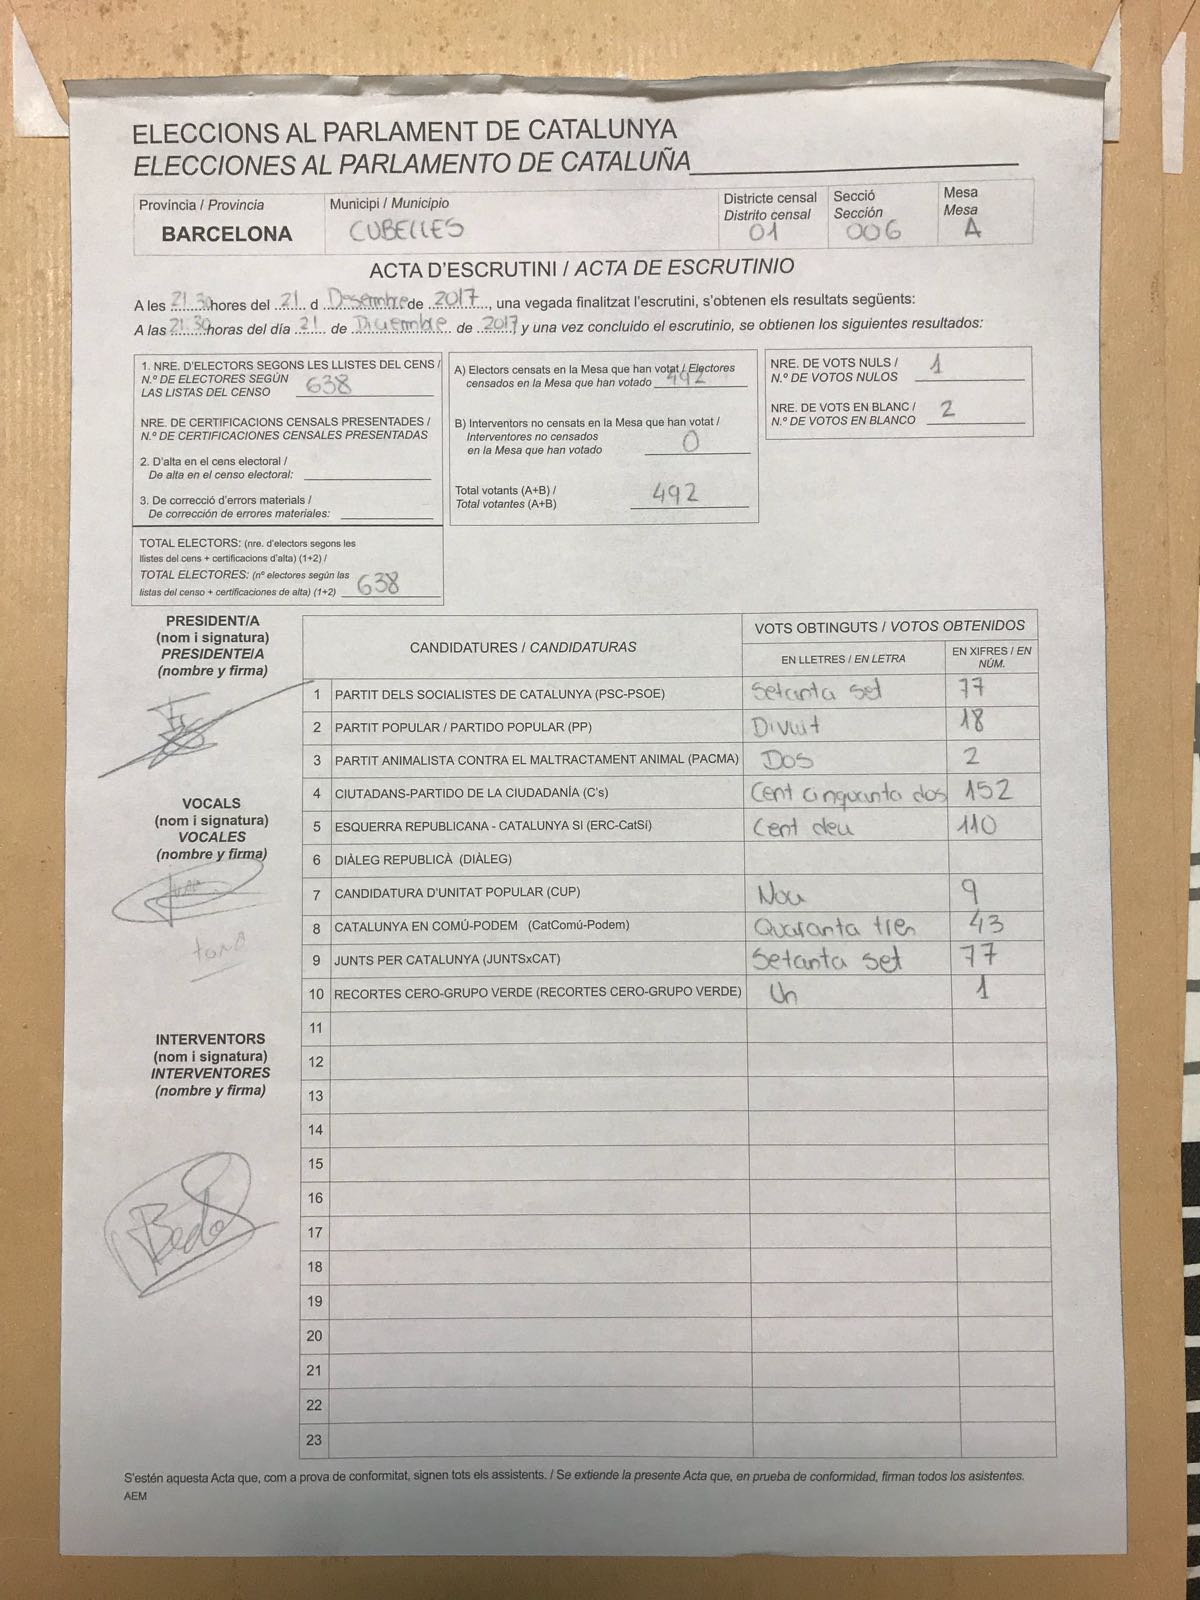 ELECCIONS AL PARLAMENT DE CATALUNYA
ELECCIONES AL PARLAMENTO DE CATALUÑA
Província / Provincia
BARCELONA
Municipi / Municipio
CUBELLES
Districte censal
Distrito censal
01
Secció
Sección
006
Mesa
Mesa
A
ACTA D'ESCRUTINI / ACTA DE ESCRUTINIO
A les 21.30 hores del 21 d Desembre de 2017, una vegada finalitzat l'escrutini, s'obtenen els resultats següents:
A las 21.30 horas del día 21 de Diciembre de 2017 y una vez concluido el escrutinio, se obtienen los siguientes resultados:
1. NRE. D'ELECTORS SEGONS LES LLISTES DEL CENS /
N.º DE ELECTORES SEGÚN
LAS LISTAS DEL CENSO 638
NRE. DE CERTIFICACIONS CENSALS PRESENTADES /
N.º DE CERTIFICACIONES CENSALES PRESENTADAS
2. D'alta en el cens electoral /
De alta en el censo electoral:
3. De correcció d'errors materials /
De corrección de errores materiales:
TOTAL ELECTORS: (nre. d'electors segons les
llistes del cens + certificacions d'alta) (1+2) /
TOTAL ELECTORES: (nº electores según las
listas del censo + certificaciones de alta) (1+2) 638
A) Electors censats en la Mesa que han votat / Electores
censados en la Mesa que han votado 492
B) Interventors no censats en la Mesa que han votat /
Interventores no censados
en la Mesa que han votado 0
Total votants (A+B) /
Total votantes (A+B) 492
NRE. DE VOTS NULS /
N.º DE VOTOS NULOS 1
NRE. DE VOTS EN BLANC /
N.º DE VOTOS EN BLANCO 2
PRESIDENT/A
(nom i signatura)
PRESIDENTE/A
(nombre y firma)
VOCALS
(nom i signatura)
VOCALES
(nombre y firma)
INTERVENTORS
(nom i signatura)
INTERVENTORES
(nombre y firma)
CANDIDATURES / CANDIDATURAS
VOTS OBTINGUTS / VOTOS OBTENIDOS
EN LLETRES / EN LETRA
EN XIFRES / EN
NÚM.
1 PARTIT DELS SOCIALISTES DE CATALUNYA (PSC-PSOE) Setanta set 77
2 PARTIT POPULAR / PARTIDO POPULAR (PP) Divuit 18
3 PARTIT ANIMALISTA CONTRA EL MALTRACTAMENT ANIMAL (PACMA) Dos 2
4 CIUTADANS-PARTIDO DE LA CIUDADANÍA (C's) Cent cinquanta dos 152
5 ESQUERRA REPUBLICANA - CATALUNYA SI (ERC-CatSí) Cent deu 110
6 DIÀLEG REPUBLICÀ (DIÀLEG)
7 CANDIDATURA D'UNITAT POPULAR (CUP) Nou 9
8 CATALUNYA EN COMÚ-PODEM (CatComú-Podem) Quaranta tres 43
9 JUNTS PER CATALUNYA (JUNTSxCAT) Setanta set 77
10 RECORTES CERO-GRUPO VERDE (RECORTES CERO-GRUPO VERDE) Un 1
11
12
13
14
15
16
17
18
19
20
21
22
23
S'estén aquesta Acta que, com a prova de conformitat, signen tots els assistents. / Se extiende la presente Acta que, en prueba de conformidad, firman todos los asistentes.
AEM